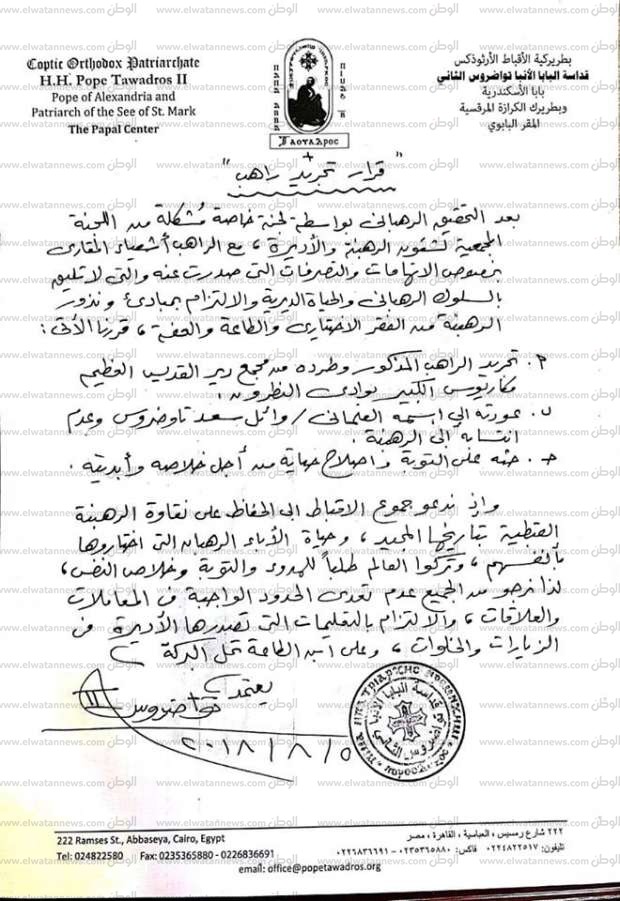 Coptic Orthodox Patriarchate
H.H. Pope Tawadros II
Pope of Alexandria and
Patriarch of the See of St. Mark
The Papal Center
بطريركية الأقباط الأرثوذكس
قداسة البابا الأنبا تواضروس الثاني
بابا الأسكندرية
وبطريرك الكرازة المرقسية
المقر البابوي
"قرار تجريد راهب"
بعد التحقيق الرهبانى بواسطة لجنة خاصة مُشكلة من اللجنة
المجمعية لشئون الرهبنة والأديرة، مع الراهب أشعياء المقارى
بخصوص الاتهامات والتصرفات التى صدرت عنه والتى لا تليق
بالسلوك الرهبانى والحياة الديرية والالتزام بمبادئ ونذور
الرهبنة من الفقر الاختيارى والطاعة والعفة، قررنا الآتى:
٢. تجريد الراهب المذكور وطرده من مجمع دير القديس العظيم
مكاريوس الكبير بوادى النطرون.
ب. عودته إلى اسمه العلمانى / وائل سعد تاوضروس وعدم
انتسابه إلى الرهبنة.
حـ. حثه على التوبة واصلاح حياته من أجل خلاصه وأبديته.
وإذ ندعو جموع الاقباط الى الحفاظ على نقاوة الرهبنة
القبطية بتاريخها المجيد، وحياة الأباء الرهبان التى اختاروها
بأنفسهم، وتركوا العالم طلباً للهدوء والتوبة وخلاص النفس،
لذا نرجو من الجميع عدم تعدى الحدود الواجبة فى المعاملات
والعلاقات، والالتزام بالتعليمات التى تصدرها الأديرة فى
الزيارات والخلوات، وعلى ابن الطاعة تحل البركة
يعتمد
تواضروس II
٢٠١٨/٨/٥
قداسة البابا الأنبا
تواضروس الثانى
222 Ramses St., Abbaseya, Cairo, Egypt
Tel: 024822580 Fax: 0235365880 - 0226836691
٢٢٢ شارع رمسيس، العباسية، القاهرة، مصر
تليفون: ٠٢٤٨٢٢٥١٧ فاكس: ٠٢٣٥٣٦٥٨٨٠ - ٠٢٢٦٨٣٦٦٩١
email: office@popetawadros.org
الوطن www.elwatannews.com